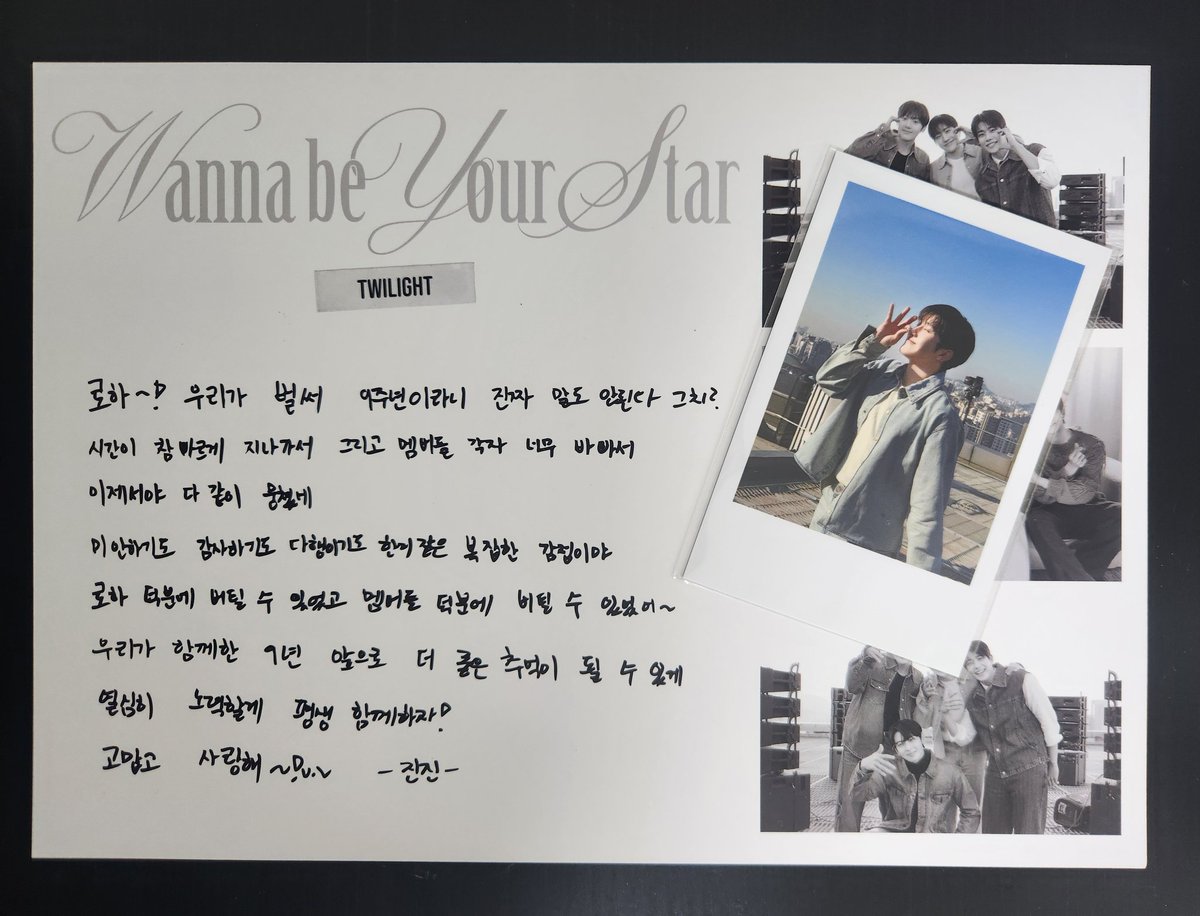 Wanna be Your Star
TWILIGHT
로하~! 우리가 벌써 9주년이라니 진짜 말도 안된다 그치?
시간이 참 빠르게 지나가서 그리고 멤버들 각자 너무 바빠서
이제서야 다 같이 뭉쳤네
미안하기도 감사하기도 다행이기도 한 복잡한 감정이야
로하 덕분에 버틸 수 있었고 멤버들 덕분에 버틸 수 있었어~
우리가 함께한 9년 앞으로 더 좋은 추억이 될 수 있게
열심히 노력할게 평생 함께하자!
고맙고 사랑해 ~ -진진-